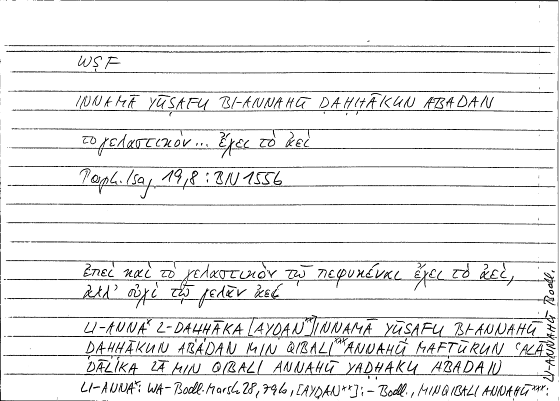 WṢF
INNAMĀ YŪṢAFU BI-ANNAHŪ ḌAḤḤĀKUN ABADAN
τὸ γελαστικὸν... ἔχει τὸ ἀεί
Porph. Isag. 19,8 : BN 155b
ἐπεὶ καὶ τὸ γελαστικὸν τῷ πεφυκέναι ἔχει τὸ ἀεί,
ἀλλ' οὐχὶ τῷ γελᾶν ἀεί
LI-ANNAˣ L-ḌAḤḤĀKA [AYḌANˣˣ] INNAMĀ YŪṢAFU BI-ANNAHŪ
ḌAḤḤĀKUN ABADAN MIN QIBALIˣˣˣ ANNAHŪ MAFṬŪRUN ʿALĀ
ḎĀLIKA LĀ MIN QIBALI ANNAHŪ YAḌḤAKU ABADAN
LI-ANNAˣ: WA- Bodl. Marsh 28, 79b, [AYḌANˣˣ]: - Bodl., MIN QIBALI ANNAHŪˣˣˣ:
LI-ANNAHŪ Bodl.